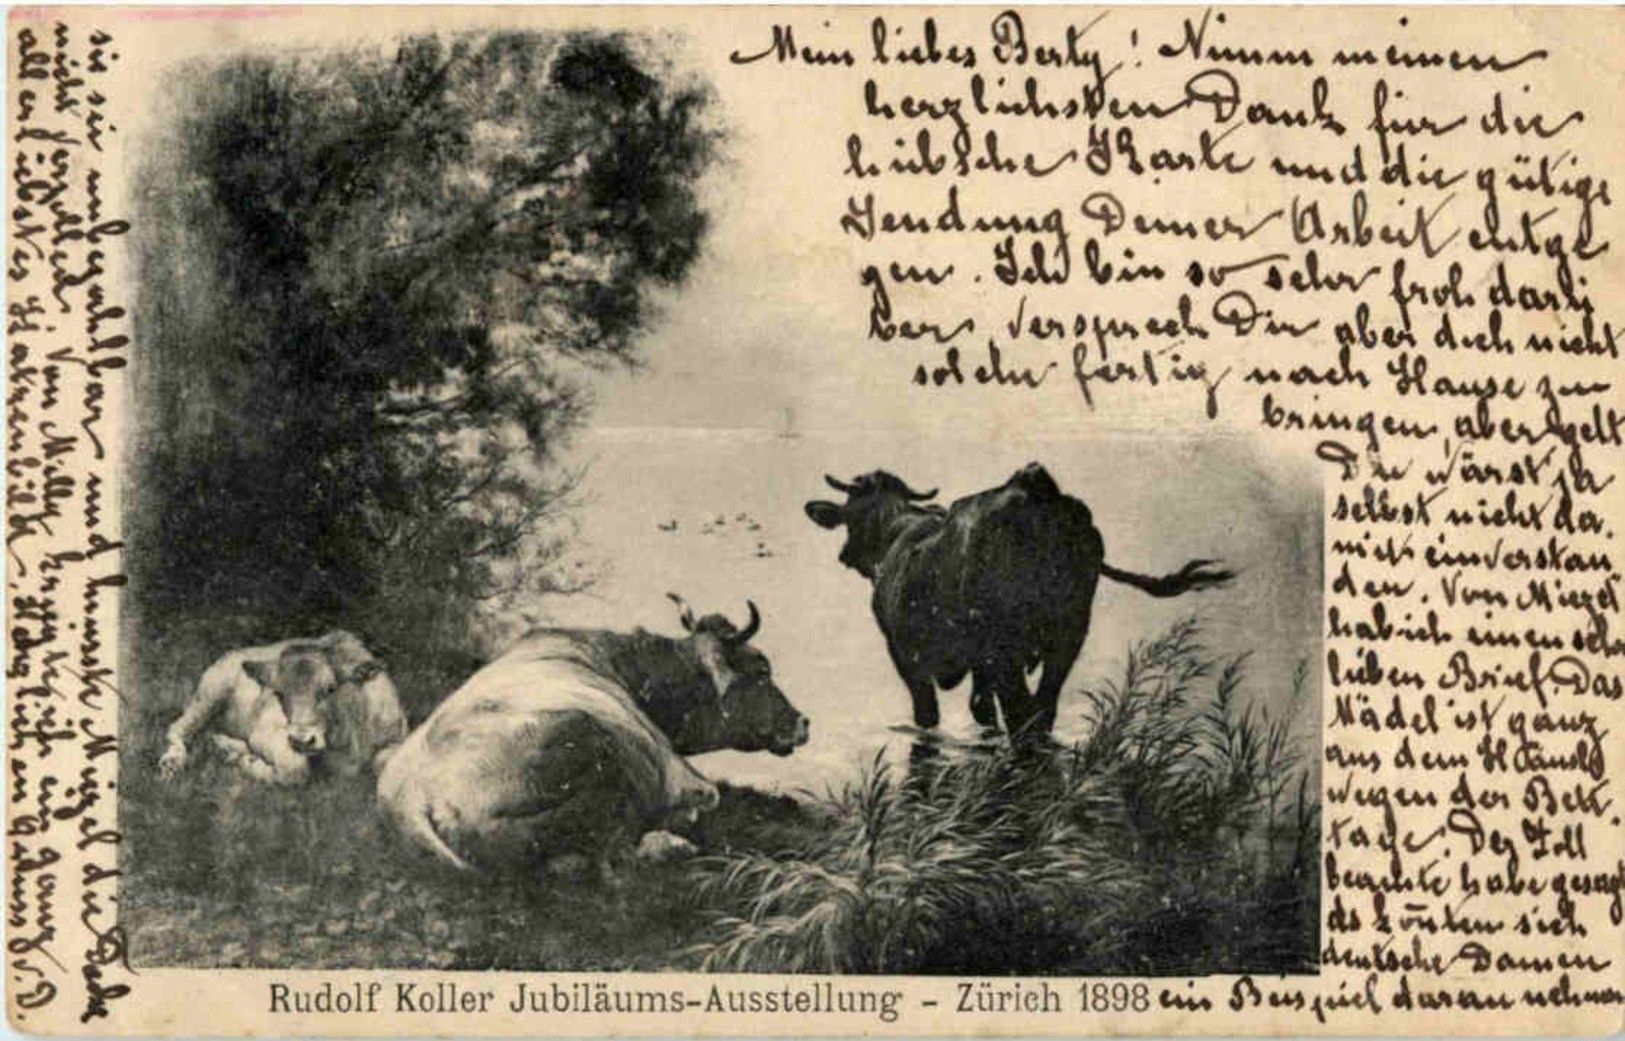 Mein liebes Berty! Nimm meinen
herzlichsten Dank für die
hübsche Karte und die gütige
Sendung Deiner Arbeit entge
gen. Ich bin so sehr froh darü
ber, versprech Dir aber doch nicht
solche fertig nach Hause zu
bringen, aber gelt
Du wärst ja
selbst nicht da,
mit einverstan
den. Von Miezel
hab ich einen sehr
lieben Brief. Das
Mädel ist ganz
aus dem Häusl
wegen der Bett,
tage. Der Zoll
beamte habe gesagt
es könten sich
deutsche Damen
ein Beispiel daran nehmen
Rudolf Koller Jubiläums-Ausstellung - Zürich 1898
sie sei unbezahlbar und Miezel die Decke
nicht verzollen. Von Milly krigte ich ein ganz
allerliebstes Katzenbild. Herzlichen Gruss v. D.